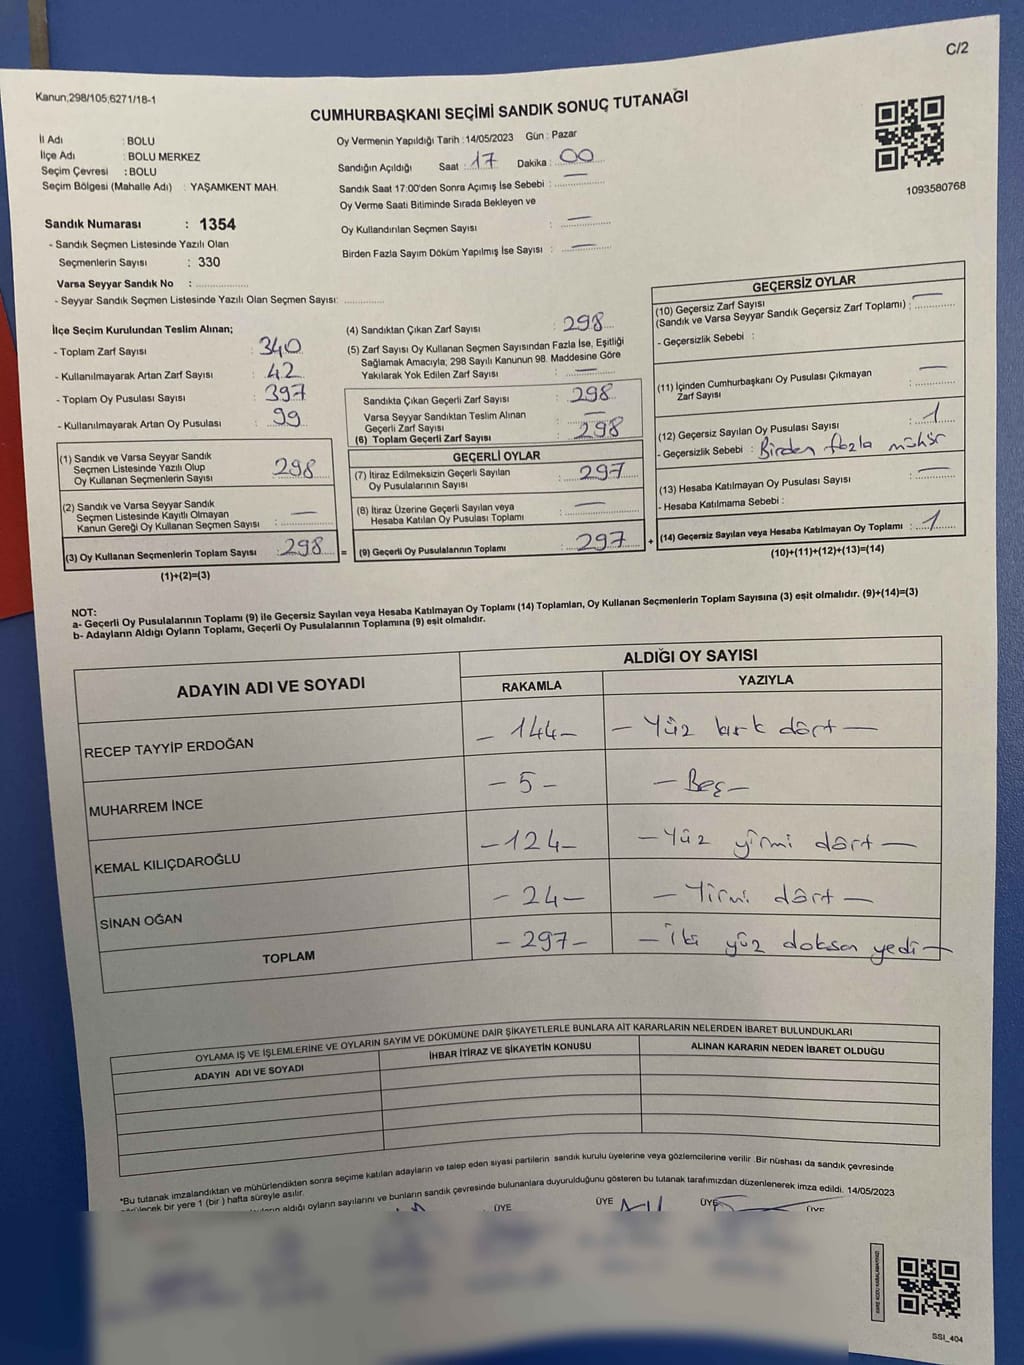 C/2
Kanun;298/105;6271/18-1
CUMHURBAŞKANI SEÇİMİ SANDIK SONUÇ TUTANAĞI
İl Adı : BOLU
İlçe Adı : BOLU MERKEZ
Seçim Çevresi : BOLU
Seçim Bölgesi (Mahalle Adı) : YAŞAMKENT MAH.
Sandık Numarası : 1354
- Sandık Seçmen Listesinde Yazılı Olan
Seçmenlerin Sayısı : 330
Varsa Seyyar Sandık No :
- Seyyar Sandık Seçmen Listesinde Yazılı Olan Seçmen Sayısı:
Oy Vermenin Yapıldığı Tarih : 14/05/2023 Gün : Pazar
Sandığın Açıldığı Saat : 17 Dakika : 00
Sandık Saat 17:00'den Sonra Açımış İse Sebebi : —
Oy Verme Saati Bitiminde Sırada Bekleyen ve
Oy Kullandırılan Seçmen Sayısı : —
Birden Fazla Sayım Döküm Yapılmış İse Sayısı : —
1093580768
İlçe Seçim Kurulundan Teslim Alınan;
- Toplam Zarf Sayısı : 340
- Kullanılmayarak Artan Zarf Sayısı : 42
- Toplam Oy Pusulası Sayısı : 397
- Kullanılmayarak Artan Oy Pusulası : 99
(1) Sandık ve Varsa Seyyar Sandık
Seçmen Listesinde Yazılı Olup
Oy Kullanan Seçmenlerin Sayısı : 298
(2) Sandık ve Varsa Seyyar Sandık
Seçmen Listesinde Kayıtlı Olmayan
Kanun Gereği Oy Kullanan Seçmen Sayısı : —
(3) Oy Kullanan Seçmenlerin Toplam Sayısı : 298 =
(1)+(2)=(3)
(4) Sandıktan Çıkan Zarf Sayısı : 298
(5) Zarf Sayısı Oy Kullanan Seçmen Sayısından Fazla İse, Eşitliği
Sağlamak Amacıyla; 298 Sayılı Kanunun 98. Maddesine Göre
Yakılarak Yok Edilen Zarf Sayısı : —
Sandıkta Çıkan Geçerli Zarf Sayısı : 298
Varsa Seyyar Sandıktan Teslim Alınan
Geçerli Zarf Sayısı : —
(6) Toplam Geçerli Zarf Sayısı : 298
GEÇERLİ OYLAR
(7) İtiraz Edilmeksizin Geçerli Sayılan
Oy Pusulalarının Sayısı : 297
(8) İtiraz Üzerine Geçerli Sayılan veya
Hesaba Katılan Oy Pusulası Toplamı : —
(9) Geçerli Oy Pusulalarının Toplamı : 297 +
GEÇERSİZ OYLAR
(10) Geçersiz Zarf Sayısı
(Sandık ve Varsa Seyyar Sandık Geçersiz Zarf Toplamı) : —
- Geçersizlik Sebebi :
(11) İçinden Cumhurbaşkanı Oy Pusulası Çıkmayan
Zarf Sayısı : —
(12) Geçersiz Sayılan Oy Pusulası Sayısı : 1
- Geçersizlik Sebebi : Birden fazla mühür
(13) Hesaba Katılmayan Oy Pusulası Sayısı : —
- Hesaba Katılmama Sebebi :
(14) Geçersiz Sayılan veya Hesaba Katılmayan Oy Toplamı : 1
(10)+(11)+(12)+(13)=(14)
NOT:
a- Geçerli Oy Pusulalarının Toplamı (9) ile Geçersiz Sayılan veya Hesaba Katılmayan Oy Toplamı (14) Toplamları, Oy Kullanan Seçmenlerin Toplam Sayısına (3) eşit olmalıdır. (9)+(14)=(3)
b- Adayların Aldığı Oyların Toplamı, Geçerli Oy Pusulalarının Toplamına (9) eşit olmalıdır.
ADAYIN ADI VE SOYADI
ALDIĞI OY SAYISI
RAKAMLA YAZIYLA
RECEP TAYYİP ERDOĞAN - 144 - - Yüz kırk dört -
MUHARREM İNCE - 5 - - Beş -
KEMAL KILIÇDAROĞLU - 124 - - Yüz yirmi dört -
SİNAN OĞAN - 24 - - Yirmi dört -
TOPLAM - 297 - - İki yüz doksan yedi -
OYLAMA İŞ VE İŞLEMLERİNE VE OYLARIN SAYIM VE DÖKÜMÜNE DAİR ŞİKAYETLERLE BUNLARA AİT KARARLARIN NELERDEN İBARET BULUNDUKLARI
ADAYIN ADI VE SOYADI İHBAR İTİRAZ VE ŞİKAYETİN KONUSU ALINAN KARARIN NEDEN İBARET OLDUĞU
*Bu tutanak imzalandıktan ve mühürlendikten sonra seçime katılan adayların ve talep eden siyasi partilerin sandık kurulu üyelerine veya gözlemcilerine verilir. Bir nüshası da sandık çevresinde
görülecek bir yere 1 (bir ) hafta süreyle asılır.
aldığı oyların sayılarını ve bunların sandık çevresinde bulunanlara duyurulduğunu gösteren bu tutanak tarafımızdan düzenlenerek imza edildi. 14/05/2023
ÜYE ÜYE ÜYE ÜYE
SSI_404